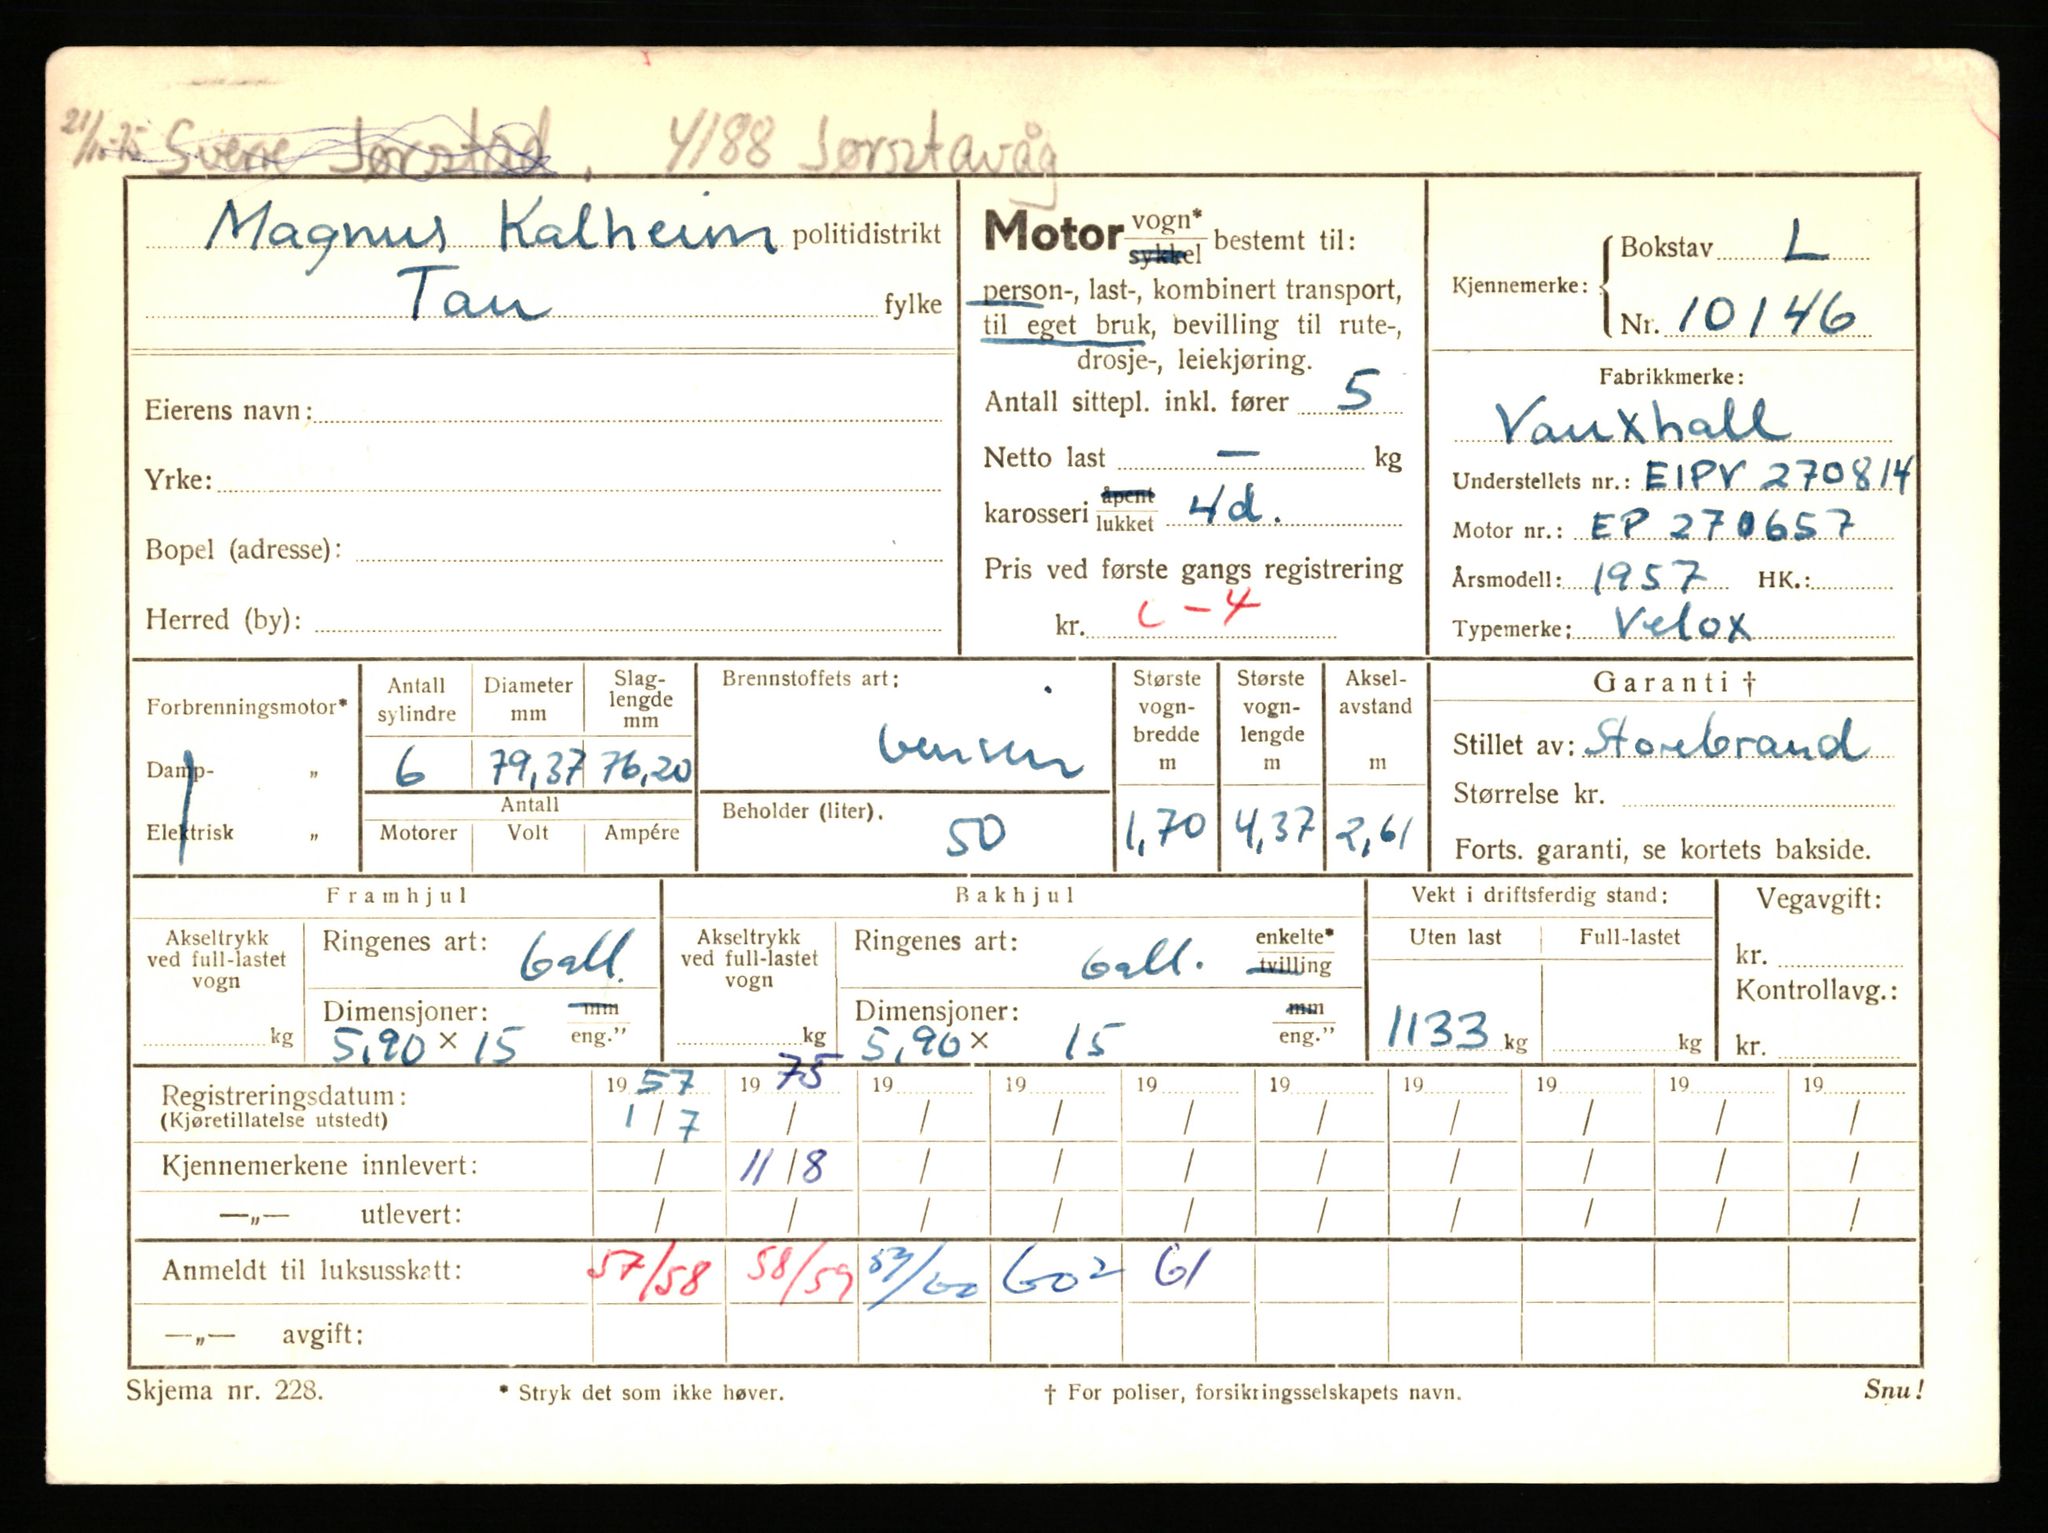 21/10-75 Sverre Jørstad, 4188 Jørsztavåg
Magnus Kalheim politidistrikt
Tau fylke
Eierens navn:
Yrke:
Bopel (adresse):
Herred (by):
Motor vogn* sykkel bestemt til:
person-, last-, kombinert transport,
til eget bruk, bevilling til rute-,
drosje-, leiekjøring.
Antall sittepl. inkl. fører 5
Netto last — kg
karosseri åpent lukket 4d.
Pris ved første gangs registrering
kr. C-4
Kjennemerke: Bokstav L
Nr. 10146
Fabrikkmerke:
Vauxhall
Understellets nr.: EIPV 270814
Motor nr.: EP 270657
Årsmodell: 1957 HK.:
Typemerke: Velox
Forbrenningsmotor*
Damp- „
Elektrisk „
Antall sylindre Diameter mm Slaglengde mm
6 79,37 76,20
Antall
Motorer Volt Ampére
Brennstoffets art:
bensin
Beholder (liter).
50
Største vognbredde m Største vognlengde m Akselavstand m
1,70 4,37 2,61
Garanti †
Stillet av: Storebrand
Størrelse kr.
Forts. garanti, se kortets bakside.
Framhjul
Akseltrykk ved full-lastet vogn kg
Ringenes art: ball.
Dimensjoner: mm
5,90 × 15 eng."
Bakhjul
Akseltrykk ved full-lastet vogn kg
Ringenes art: ball. enkelte* tvilling
Dimensjoner: mm
5,90 × 15 eng."
Vekt i driftsferdig stand:
Uten last Full-lastet
1133 kg kg
Vegavgift:
kr.
Kontrollavg.:
kr.
Registreringsdatum: 19 57 19 75 19 19 19 19 19 19 19 19
(Kjøretillatelse utstedt) 1/7 / / / / / / / / /
Kjennemerkene innlevert: / 11/8 / / / / / / / /
—„— utlevert: / / / / / / / / / /
Anmeldt til luksusskatt: 57/58 58/59 59/60 60² 61
—„— avgift:
Skjema nr. 228. * Stryk det som ikke høver. † For poliser, forsikringsselskapets navn. Snu!